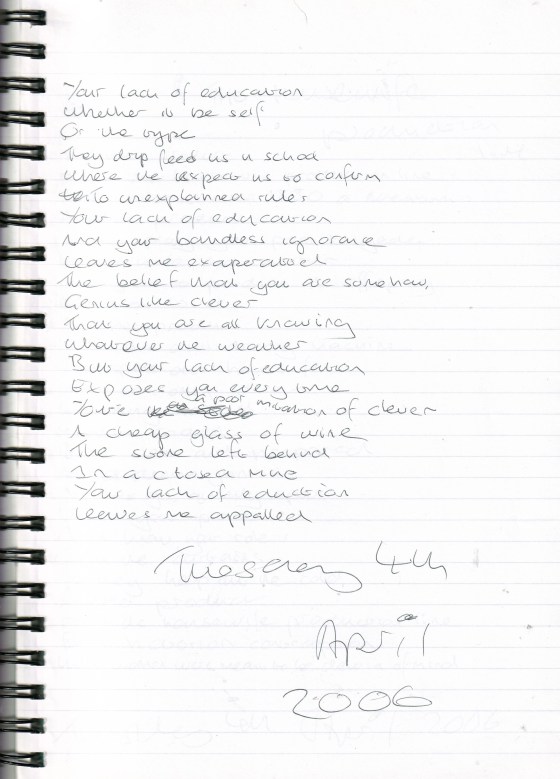 Your lack of education
Whether it be self
Or the type
They drip feed us in school
Where we expect us to conform
To unexplained rules
Your lack of education
And your boundless ignorance
Leaves me exaperated
The belief that you are somehow,
Genius like clever
That you are all knowing
Whatever the weather
But your lack of education
Exposes you every time
You're a poor imitation of clever
A cheap glass of wine
The stone left behind
In a closed mine
Your lack of education
Leaves me appalled
Tuesday 4th
April
2006